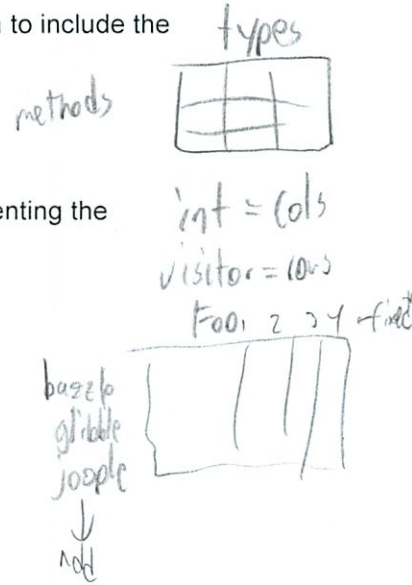 to include the
types
methods
enting the
int = cols
visitor = rows
Foo1 2 3 4 - fixed
bazzle
gribble
joople
add